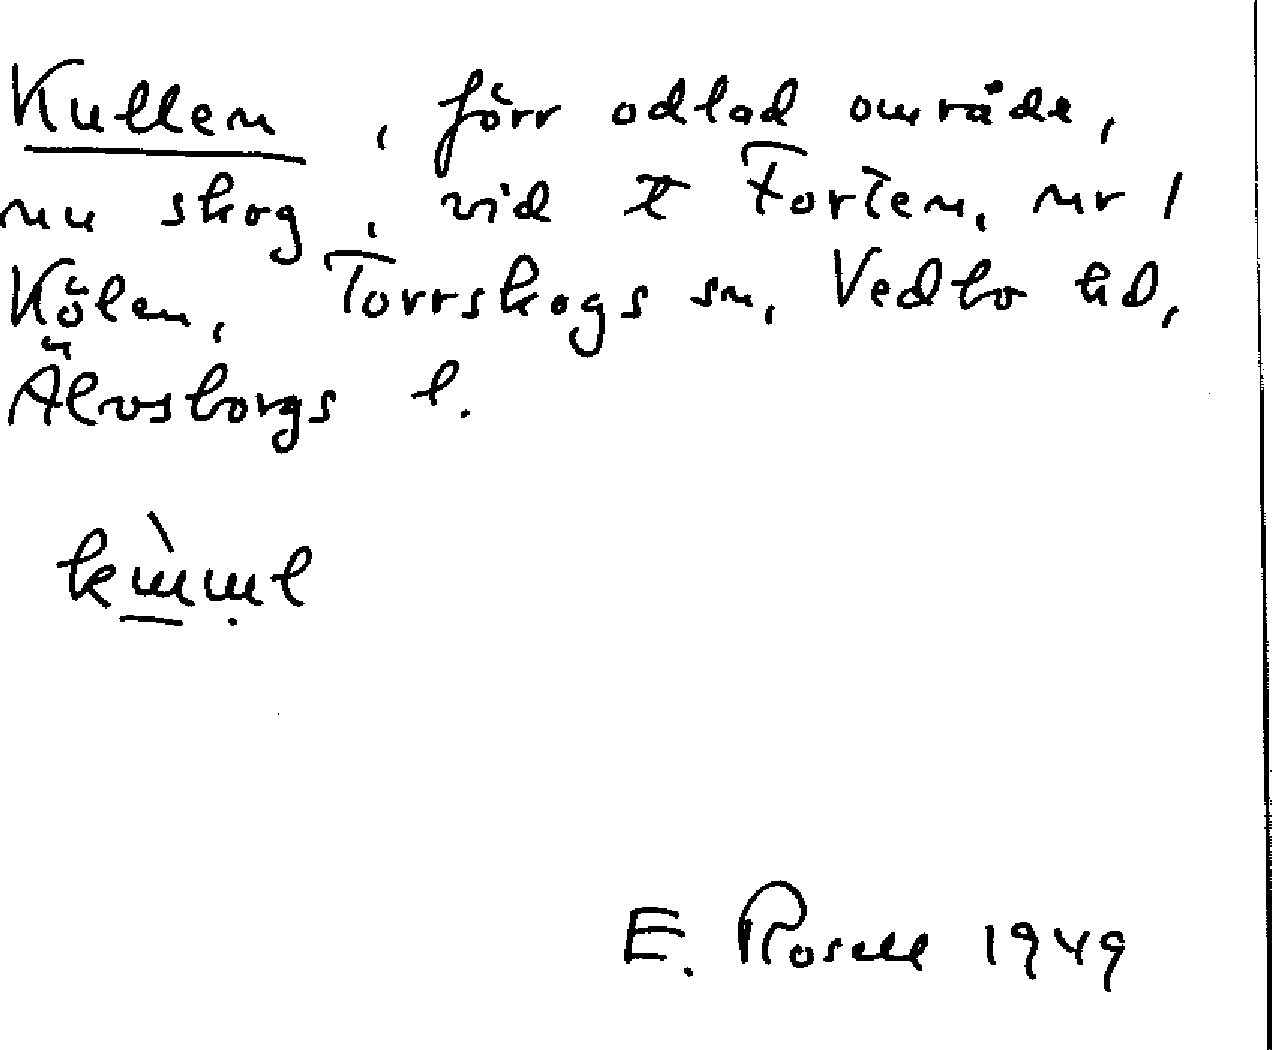 Kullen, förr odlad område,
nu skog, vid t Forten, nr 1
Kölen, Torrskogs sn, Vedbo hd,
Älvsborgs l.
E. Rosell 1949